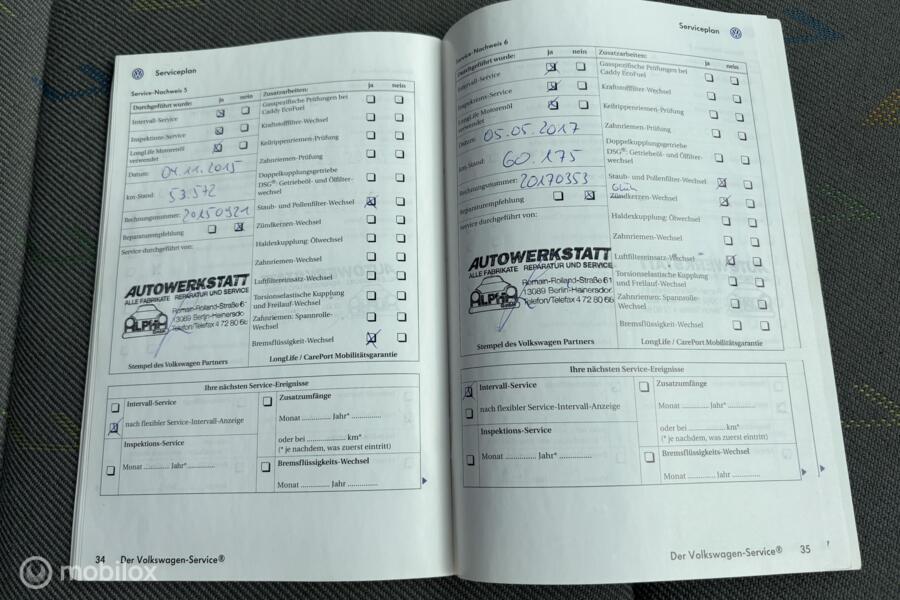 Serviceplan
Service-Nachweis 5
Durchgeführt wurde: ja nein
Intervall-Service
Inspektions-Service
LongLife Motorenöl
verwendet
Datum: 04.11.2015
km-Stand: 53.572
Rechnungsnummer: 20150921
Reparaturempfehlung
Service durchgeführt von:
AUTOWERKSTATT
ALLE FABRIKATE REPARATUR UND SERVICE
ALPHA
Romain-Rolland-Straße 61
13089 Berlin-Heinersdorf
Telefon/Telefax 4 72 80 66
Stempel des Volkswagen Partners
Zusatzarbeiten: ja nein
Gasspezifische Prüfungen bei
Caddy EcoFuel
Kraftstofffilter-Wechsel
Keilrippenriemen-Prüfung
Zahnriemen-Prüfung
Doppelkupplungsgetriebe
DSG®: Getriebeöl- und Ölfilter-
wechsel
Staub- und Pollenfilter-Wechsel
Zündkerzen-Wechsel
Haldexkupplung: Ölwechsel
Zahnriemen-Wechsel
Luftfiltereinsatz-Wechsel
Torsionselastische Kupplung
und Freilauf-Wechsel
Zahnriemen: Spannrolle-
Wechsel
Bremsflüssigkeit-Wechsel
LongLife / CarePort Mobilitätsgarantie
Ihre nächsten Service-Ereignisse
Intervall-Service
nach flexibler Service-Intervall-Anzeige
Inspektions-Service
Monat ............ Jahr* ............
Zusatzumfänge
Monat ............ Jahr* ............
oder bei ............ km*
(* je nachdem, was zuerst eintritt)
Bremsflüssigkeits-Wechsel
Monat ............ Jahr ............
34 Der Volkswagen-Service®
Serviceplan
Service-Nachweis 6
Durchgeführt wurde: ja nein
Intervall-Service
Inspektions-Service
LongLife Motorenöl
verwendet
Datum: 05.05.2017
km-Stand: 60.175
Rechnungsnummer: 20170353
Reparaturempfehlung
Service durchgeführt von:
AUTOWERKSTATT
ALLE FABRIKATE REPARATUR UND SERVICE
ALPHA
Romain-Rolland-Straße 61
13089 Berlin-Heinersdorf
Telefon/Telefax 4 72 80 66
Stempel des Volkswagen Partners
Zusatzarbeiten: ja nein
Gasspezifische Prüfungen bei
Caddy EcoFuel
Kraftstofffilter-Wechsel
Keilrippenriemen-Prüfung
Zahnriemen-Prüfung
Doppelkupplungsgetriebe
DSG®: Getriebeöl- und Ölfilter-
wechsel
Staub- und Pollenfilter-Wechsel
Glüh
Zündkerzen-Wechsel
Haldexkupplung: Ölwechsel
Zahnriemen-Wechsel
Luftfiltereinsatz-Wechsel
Torsionselastische Kupplung
und Freilauf-Wechsel
Zahnriemen: Spannrolle-
Wechsel
Bremsflüssigkeit-Wechsel
LongLife / CarePort Mobilitätsgarantie
Ihre nächsten Service-Ereignisse
Intervall-Service
nach flexibler Service-Intervall-Anzeige
Inspektions-Service
Monat ............ Jahr* ............
Zusatzumfänge
Monat ............ Jahr* ............
oder bei ............ km*
(* je nachdem, was zuerst eintritt)
Bremsflüssigkeits-Wechsel
Monat ............ Jahr ............
Der Volkswagen-Service® 35
mobilox